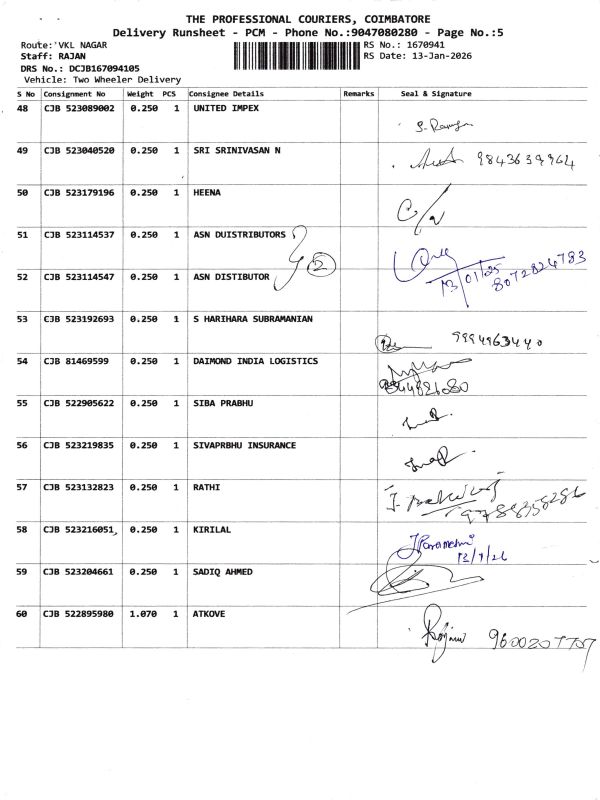 THE PROFESSIONAL COURIERS, COIMBATORE
Delivery Runsheet - PCM - Phone No.:9047080280 - Page No.:5
Route: VKL NAGAR RS No.: 1670941
Staff: RAJAN RS Date: 13-Jan-2026
DRS No.: DCJB167094105
Vehicle: Two Wheeler Delivery
S No Consignment No Weight PCS Consignee Details Remarks Seal & Signature
48 CJB 523089002 0.250 1 UNITED IMPEX
49 CJB 523040520 0.250 1 SRI SRINIVASAN N 9843639964
50 CJB 523179196 0.250 1 HEENA
51 CJB 523114537 0.250 1 ASN DUISTRIBUTORS
2
13/01/25
8072824783
52 CJB 523114547 0.250 1 ASN DISTIBUTOR
53 CJB 523192693 0.250 1 S HARIHARA SUBRAMANIAN 9994963440
54 CJB 81469599 0.250 1 DAIMOND INDIA LOGISTICS
55 CJB 522905622 0.250 1 SIBA PRABHU
56 CJB 523219835 0.250 1 SIVAPRBHU INSURANCE
57 CJB 523132823 0.250 1 RATHI
58 CJB 523216051 0.250 1 KIRILAL
13/1/26
59 CJB 523204661 0.250 1 SADIQ AHMED
60 CJB 522895980 1.070 1 ATKOVE 9600207757